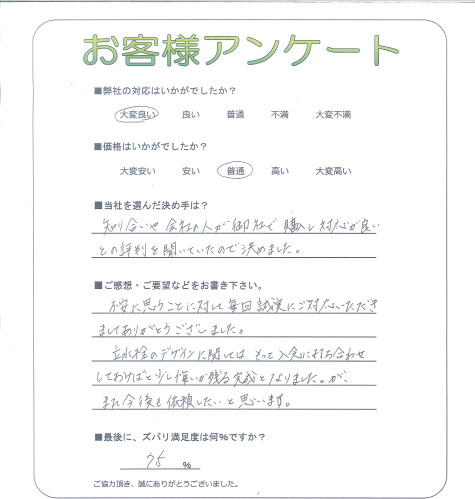 お客様アンケート
■弊社の対応はいかがでしたか?
大変良い 良い 普通 不満 大変不満
■価格はいかがでしたか?
大変安い 安い 普通 高い 大変高い
■当社を選んだ決め手は?
知り合いや会社の人が御社で購入し対応が良い
との評判を聞いていたので決めました。
■ご感想・ご要望などをお書き下さい。
不安に思うことに対して毎回誠実にご対応いただき
ましてありがとうございました。
立水栓のデザインに関しては、もっと入念に打ち合わせ
しておけばと少し悔いが残る完成となりました。が、
また今後も依頼したいと思います。
■最後に、ズバリ満足度は何%ですか?
75 %
ご協力頂き、誠にありがとうございました。